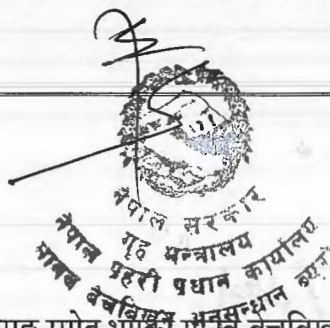 नेपाल सरकार
गृह मन्त्रालय
नेपाल प्रहरी प्रधान कार्यालय
मानव बेचबिखन अनुसन्धान ब्यूरो